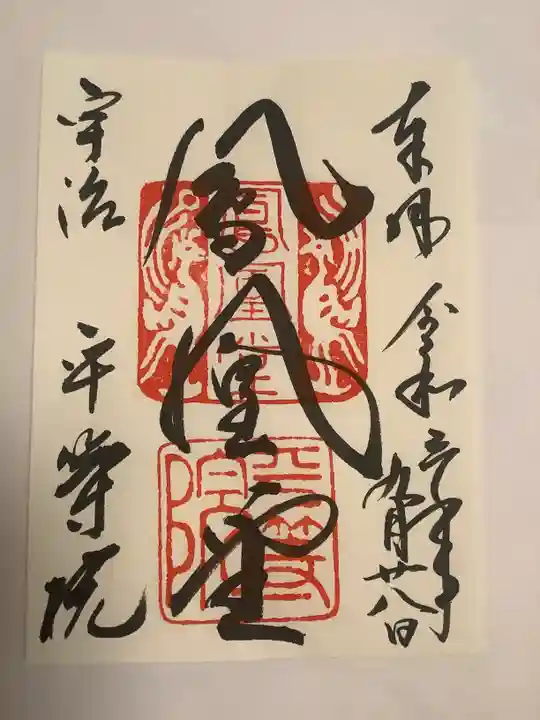 奉拝 令和三年
九月廿八日
鳳凰堂
鳳凰堂
平等院
宇治 平等院